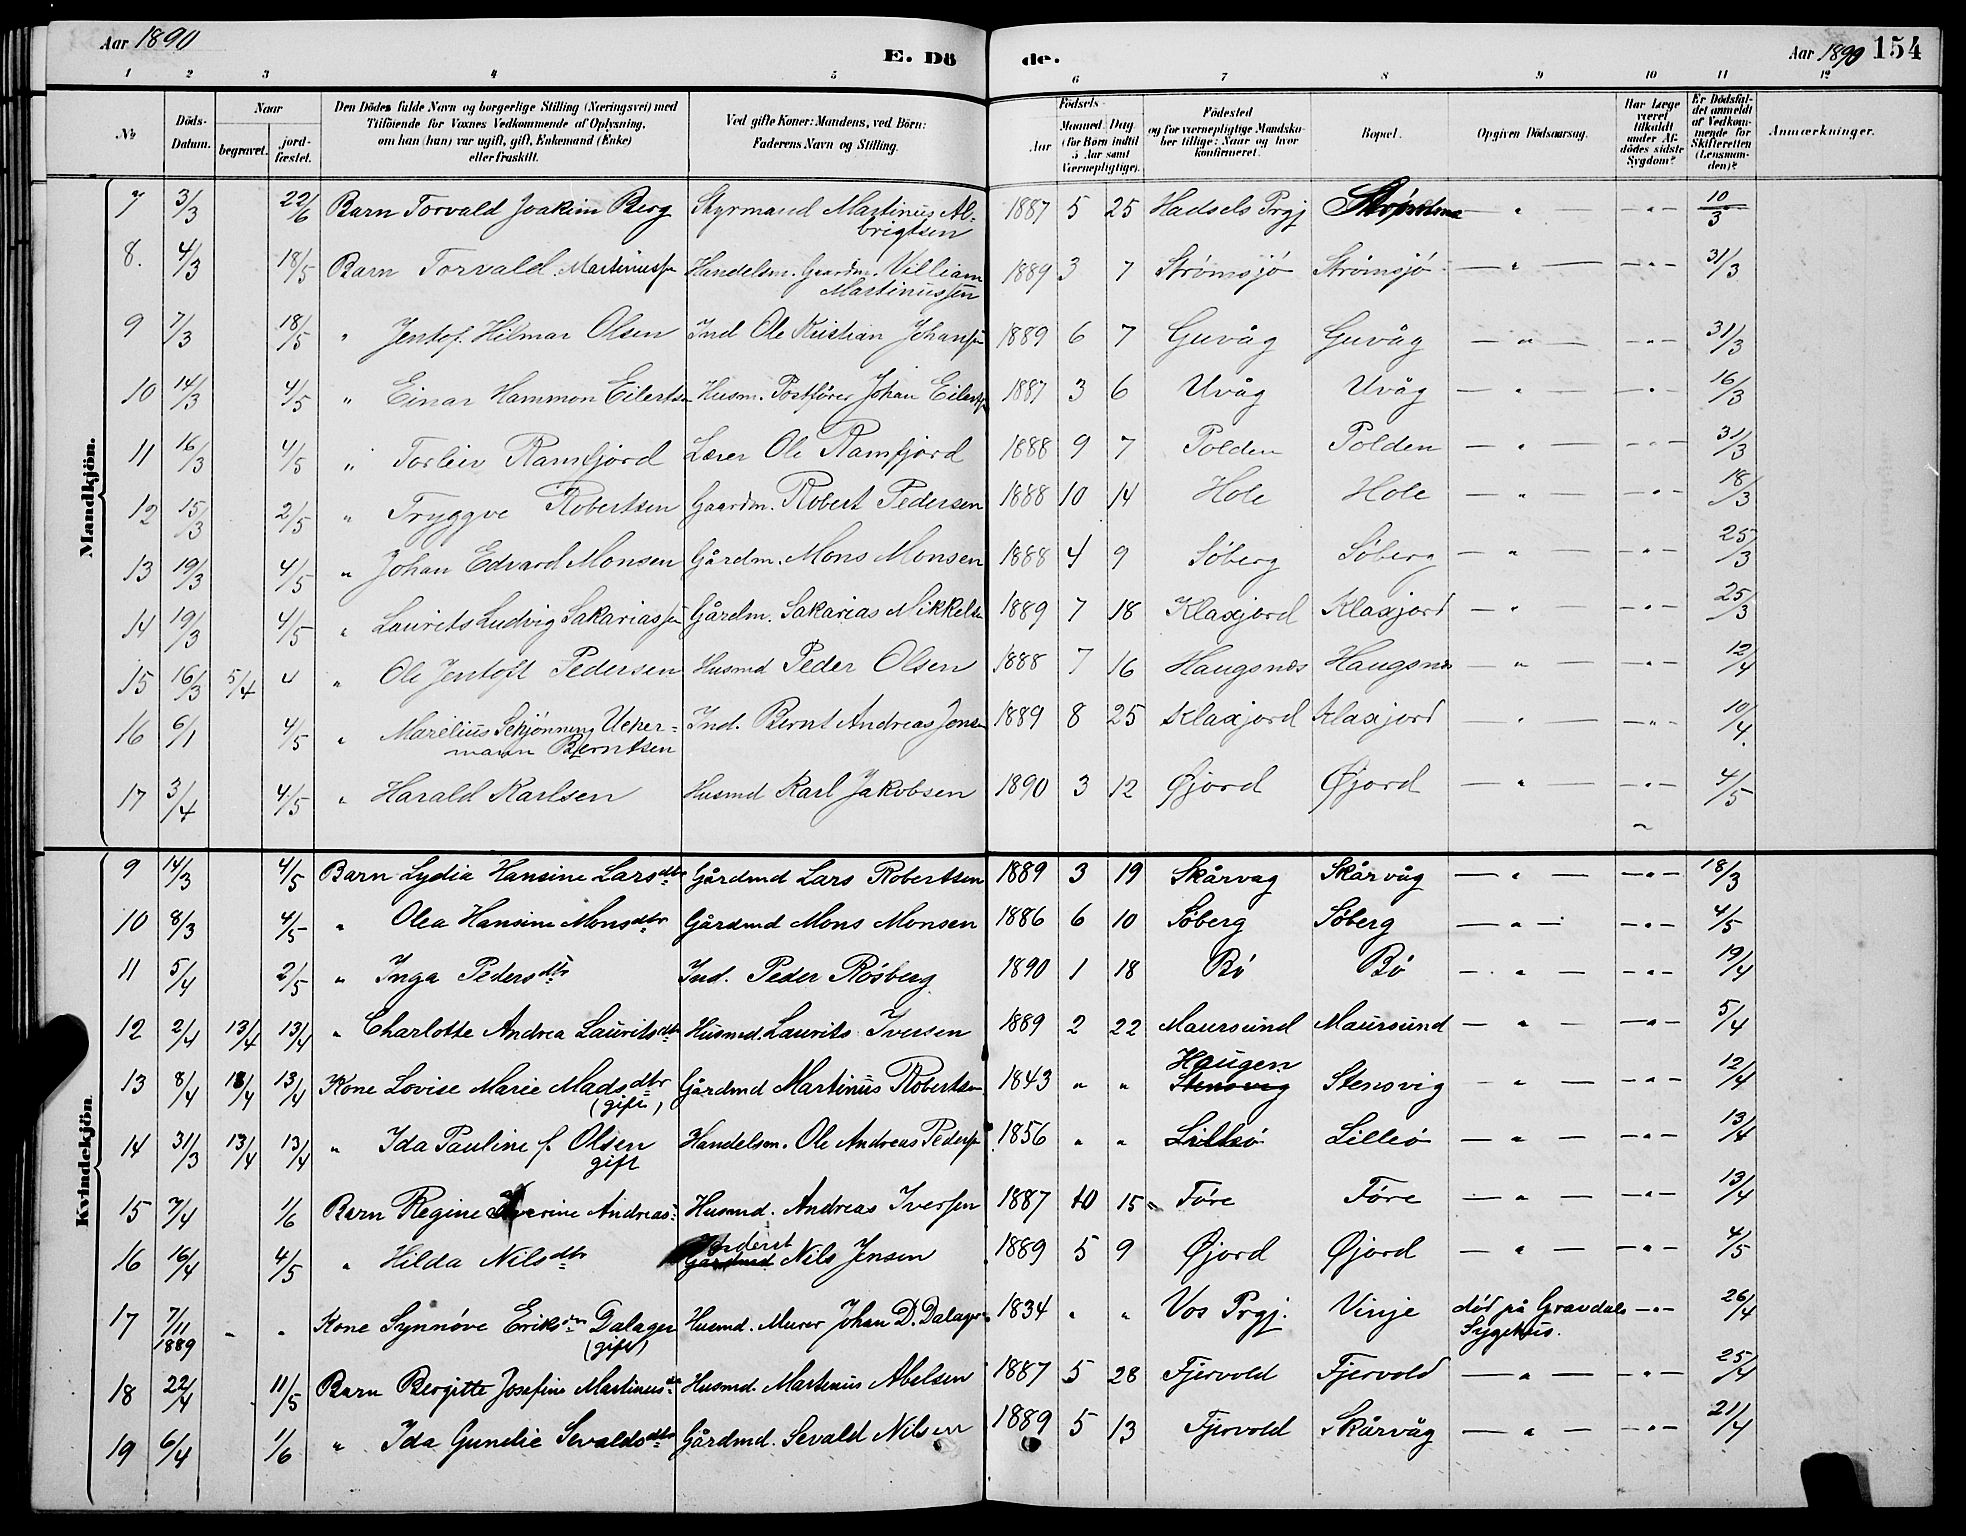 Aar 1890
E. Dö de.
Aar 1890 154
1 2 3 4 5 6 7 8 9 10 11 12
No
Döds-Datum.
Naar
begravet. jordfæstet.
Den Dödes fulde Navn og borgerlige Stilling (Næringsvei) med
Tilföiende for Voxnes Vedkommende af Oplysning,
om han (hun) var ugift, gift, Enkemand (Enke)
eller fraskilt.
Ved gifte Koner: Mandens, ved Börn:
Faderens Navn og Stilling.
Födsels-
Aar
Maaned. Dag
(for Börn indtil
5 Aar samt
Værnepligtige).
Födested
og for værnepligtige Mandska-
ber tillige: Naar og hvor
konfirmeret.
Bopæl.
Opgiven Dödsaarsag.
Har Læge
været
tilkaldt
under Af-
dödes sidste
Sygdom?
Er Dödsfal-
det anmeldt
af Vedkom-
mende for
Skifteretten
(Lensman-
den)?
Anmærkninger.
Mandkjön.
7 3/3 22/6 Barn Torvald Joakim Berg Styrmand Martinus Al-brigtsen 1887 5 25 Hadsels Prgj — " — — " — 10/3
8. 4/3 18/5 Barn Torvald Martiniussen Handelsm. Gaardm. Villiam Martinussen 1889 3 7 Strømsjö Strömsjö — " — — " — 31/3
9 7/3 18/5 " Jentof. Hilmar Olsen Ind Ole Kristian Johansen 1889 6 7 Guvåg Guvåg — " — — " — 31/3
10 14/3 4/5 " Einar Hammon Eilertsen Husm. Postförer Johan Eilertsen 1887 3 6 Uvåg Uvåg — " — — " — 16/3
11 16/3 4/5 " Torleiv Ramfjord Lærer Ole Ramfjord 1888 9 7 Polden Polden — " — — " — 31/3
12 15/3 2/5 " Tryggve Robertsen Gaardm. Robert Pedersen 1888 10 14 Hole Hole — " — — " — 18/3
13 19/3 4/5 " Johan Edvard Monsen Gårdm. Mons Monsen 1888 4 9 Söberg Söberg — " — — " — 25/3
14 19/3 4/5 " Laurits Ludvig Sakariassen Gårdm. Sakarias Mikkelsen 1889 7 18 Klaxjord Klaxjord — " — — " — 25/3
15 16/3 5/4 " " Ole Jentoft Pedersen Husmd Peder Olsen 1888 7 16 Haugsnes Haugsnes — " — — " — 12/4
16 6/1 4/5 " Marelius Schjønning Ueker-mann Berntsen Ind. Bernt Andreas Jonsen 1889 8 25 Klaxjord Klaxjord — " — — " — 10/4
17 3/4 4/5 " Harald Karlsen Husmd Karl Jakobsen 1890 3 12 Øjord Øjord — " — — " — 4/5
Kvindekjön
9 14/3 4/5 Barn Lydia Hansine Larsdtr Gårdmd Lars Robertsen 1889 3 19 Skårvag Skårvåg — " — — " — 18/3
10 8/3 4/5 " Olea Hansine Monsdtr Gårdmd Mons Monsen 1886 6 10 Söberg Söberg — " — — " — 4/5
11 5/4 2/5 " Inga Pedersdtr Ind. Peder Rösberg 1890 1 18 Bö Bö — " — — " — 19/4
12 2/4 13/4 13/4 " Charlotte Andrea Lauritsdtr Husmd. Laurits Iversen 1889 2 22 Maursund Maursund — " — — " — 5/4
13 8/4 18/4 13/4 Kone Lovise Marie Madsdtr (gift) Gårdmd Martinus Robertsen 1843 " " Haugen Stensvig Stensvig — " — — " — 12/4
14 31/3 13/4 13/4 " Ida Pauline f. Olsen gift Handelsm. Ole Andreas Pedersen 1856 " " Lilleö Lilleö — " — — " — 13/4
15 7/4 1/6 Barn Regine Andreas Husmd. Andreas Iversen 1887 10 15 Före Före — " — — " — 13/4
16 16/4 4/5 " Hilda Nilsdtr Inderst Gårdmd Nils Jensen 1889 5 9 Øjord Øjord — " — — " — 4/5
17 7/11 1889 " " Kone Synnöve Eriksdtr Dalager (gift) Husmd. Murer Johan D. Dalager 1834 " " Vos Prgj. Vinje död på Gravdals Sygehus. — " — 26/4
18 22/4 11/5 Barn Bergitte Josefine Martinusdtr Husmd. Martinus Abelsen 1887 5 28 Fjervold Fjervold — " — — " — 25/4
19 6/4 1/6 " Ida Gundie Sevaldsdtr Gårdmd. Sevald Nilsen 1889 5 13 Fjervold Skårvåg — " — — " — 21/4